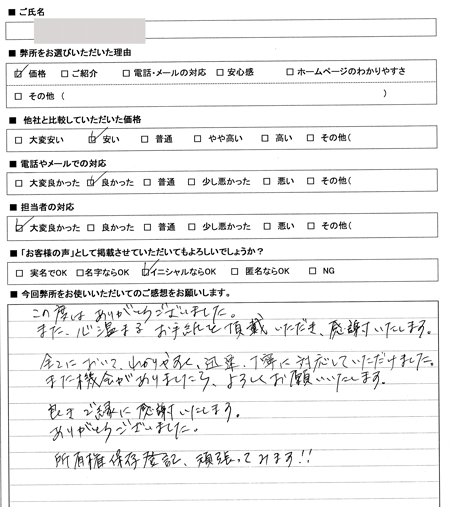 ■ ご氏名
■ 弊所をお選びいただいた理由
☑ 価格 □ ご紹介 □ 電話・メールの対応 □ 安心感 □ ホームページのわかりやすさ
□ その他（ ）
■ 他社と比較していただいた価格
□ 大変安い ☑ 安い □ 普通 □ やや高い □ 高い □ その他(
■ 電話やメールでの対応
□ 大変良かった ☑ 良かった □ 普通 □ 少し悪かった □ 悪い □ その他(
■ 担当者の対応
☑ 大変良かった □ 良かった □ 普通 □ 少し悪かった □ 悪い □ その他(
■ 「お客様の声」として掲載させていただいてもよろしいでしょうか？
□ 実名でOK □ 名字ならOK ☑ イニシャルならOK □ 匿名ならOK □ NG
■ 今回弊所をお使いいただいてのご感想をお願いします。
この度は ありがとうございました。
また、心温まる お手紙を頂戴いただき、感謝いたします。
全てにおいて、わかりやすく、迅速、丁寧に対応していただけました。
また機会がありましたら、よろしくお願いいたします。
良きご縁に感謝いたします。
ありがとうございました。
所有権保存登記、頑張ってみます!!